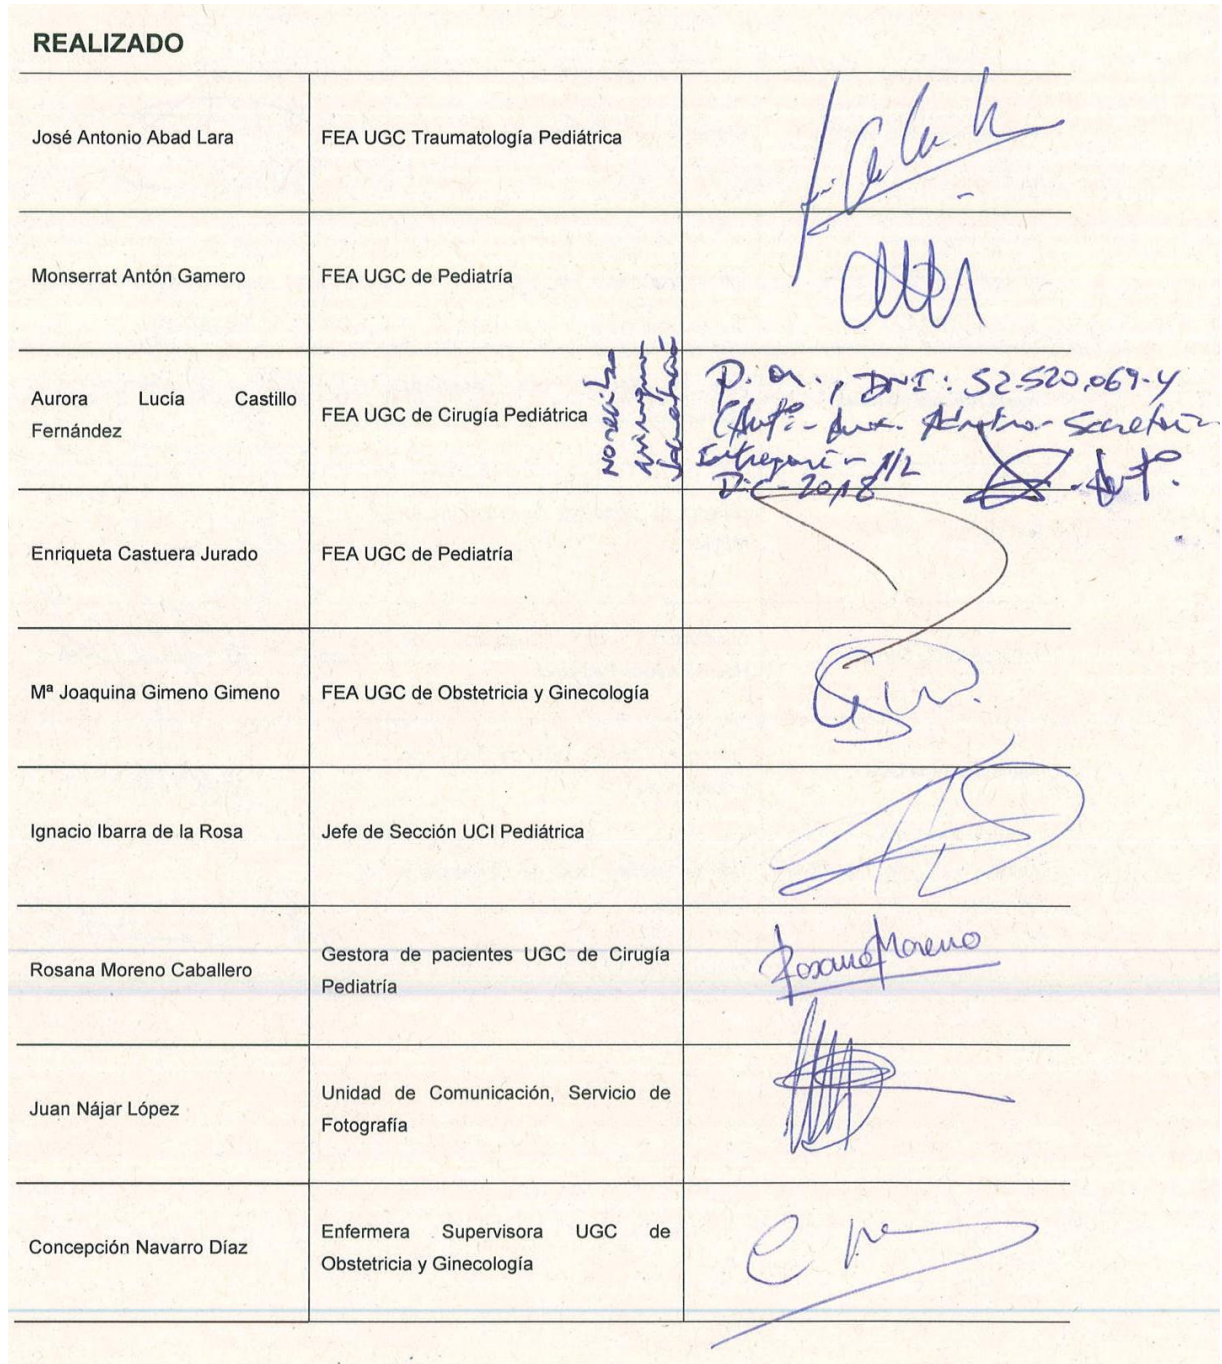 REALIZADO
José Antonio Abad Lara
FEA UGC Traumatología Pediátrica
Monserrat Antón Gamero
FEA UGC de Pediatría
Aurora Lucía Castillo
Fernández
FEA UGC de Cirugía Pediátrica
P.A., DNI: 52.520.069-Y
Dic-2018
Enriqueta Castuera Jurado
FEA UGC de Pediatría
Mª Joaquina Gimeno Gimeno
FEA UGC de Obstetricia y Ginecología
Ignacio Ibarra de la Rosa
Jefe de Sección UCI Pediátrica
Rosana Moreno Caballero
Gestora de pacientes UGC de Cirugía
Pediatría
Rosana Moreno
Juan Nájar López
Unidad de Comunicación, Servicio de
Fotografía
Concepción Navarro Díaz
Enfermera Supervisora UGC de
Obstetricia y Ginecología